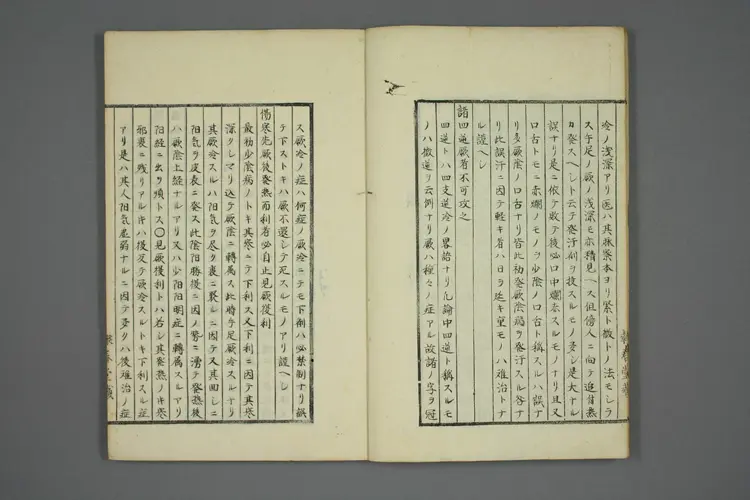 冷ノ浅深アリ医ハ其脉緊本ヨリ緊ト散トノ法モシラ
ス手足ノ厥ノ浅深モ亦積見ヘス但傍人ニ向テ追甘熱
カ発スヘシト云テ発汗剤ヲ投スルモノ多シ是大ナル
誤ナリ是ニ依テ救テ後必口中爛赤スルモノナリ且又
口古トモニ赤爛ノモノヲ少陰ノ口古ト稱スルハ誤ナ
リ多厥陰ノ口古ナリ皆此初発厥陰病ヲ発汗スル咎ナ
リ此誤汗ニ因テ軽キ者ハ日ヲ延キ重モノハ難治トナ
ル謹ヘシ
諸四逆厥者不可攻之
四逆トハ四支逆冷ノ畧語ナリ凡論中四逆ト稱スルモ
ノハ微逆ヲ云例ナリ厥ハ種々ノ症アル故諸ノ字ヲ冠
ス厥冷ノ症ハ何症ノ厥冷ニテモ下剤ハ必禁制ナリ誤
テ下ストキハ厥不還シテ死スルモノアリ謹ヘシ
傷寒先厥後発熱而利者必自止見厥復利
最初少陰病ノトキ其寒ニテ下利ス又下利ニ因テ其寒
深クシマリ込テ厥陰ニ轉属ス此時手足厥冷スルナリ
其厥冷スルハ陽気ヲ尽ク裏ニ襲シニ因テ又其回シニ
陽気ヲ皮表ニ発ス此陰陽勝復ニ因ノ勢ニ湧テ発熱後
ハ厥陰上経ナルアリ又ハ少陽陽明症ニ轉属スルアリ
陽経ニ出ヲ順トス〇見厥復利トハ若シ其発熱ノキ寒
邪裏ニ残リアルキハ後反テ厥冷スルトキ下利スル症
アリ是ハ其人陽気虚弱ナルニ因テ多クハ後難治ノ症